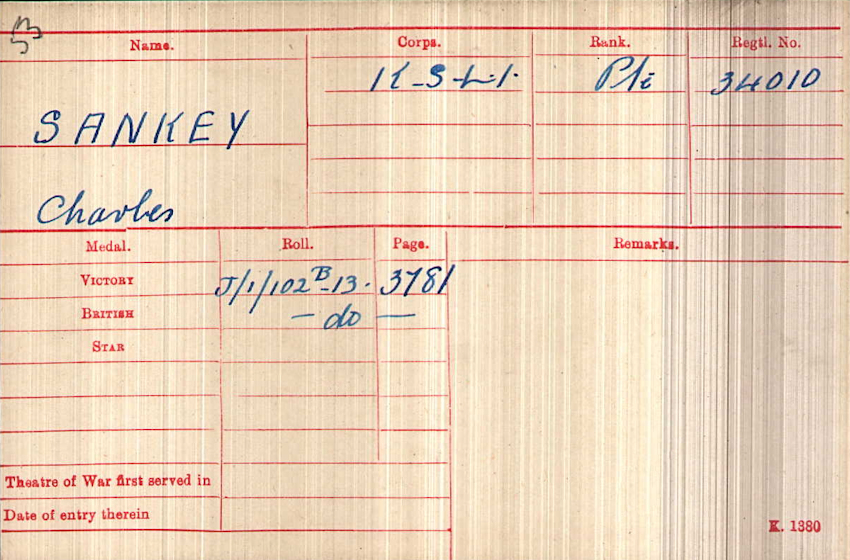 3
Name. Corps. Rank. Regtl. No.
K.S.L.I. Pte 34010
SANKEY
Charles
Medal. Roll. Page. Remarks.
VICTORY J/1/102B-13. 3781
BRITISH — do —
STAR
Theatre of War first served in
Date of entry therein
K. 1380